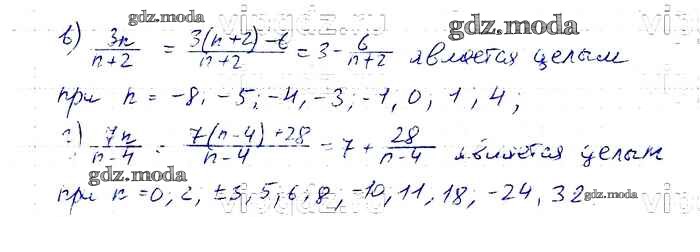 gdz.moda
в) 3n/(n+2) = (3(n+2)-6)/(n+2) = 3 - 6/(n+2) является целым
gdz.moda
при n = -8; -5; -4, -3; -1, 0, 1, 4;
г) 7n/(n-4) = (7(n-4)+28)/(n-4) = 7 + 28/(n-4) является целым
gdz.moda
при n = 0; 2, ±3, 5; 6; 8, -10, 11, 18, -24, 32
gdz.moda